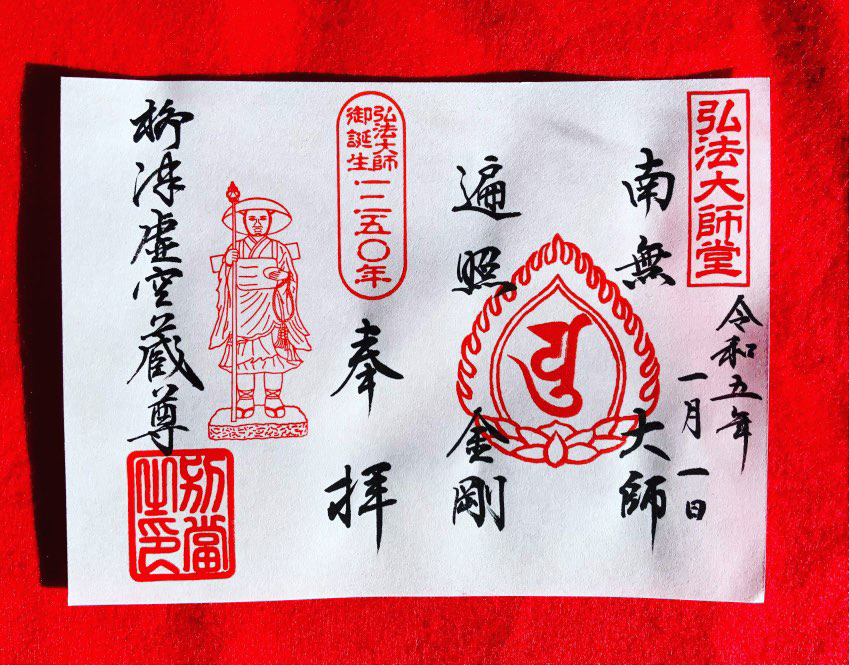 弘法大師堂
令和五年
一月一日
南無大師
遍照金剛
弘法大師
御誕生
一二五〇年
奉拝
柳津虚空蔵尊
別當
之印